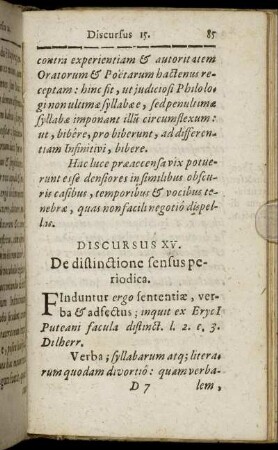 Discursus 15. 85
contra experientiam & autoritatem
Oratorum & Poëtarum hactenus re-
ceptam: hinc fit, ut judiciosi Philolo-
gi non ultimæ syllabæe, sed penultimæ
syllabæ imponant illũ circumflexum:
ut, bibêre, pro biberunt, ad differen-
tiam Infinitivi, bibere.
Hac luce præaccensa vix potue-
runt esse densiores in similibus obscu-
ris casibus, temporibus & vocibus te-
nebræ, quas non facili negotiô dispel-
las.
DISCURSUS XV.
De distinctione sensus pe-
riodica.
FInduntur ergo sententiæ, ver-
ba & adfectus; inquit ex ErycI
Puteani facula distinct. l. 2. c, 3.
Dilherr.
Verba; syllabarum atq; litera-
rum quodam divortiô: quam verba-
D 7 lem,